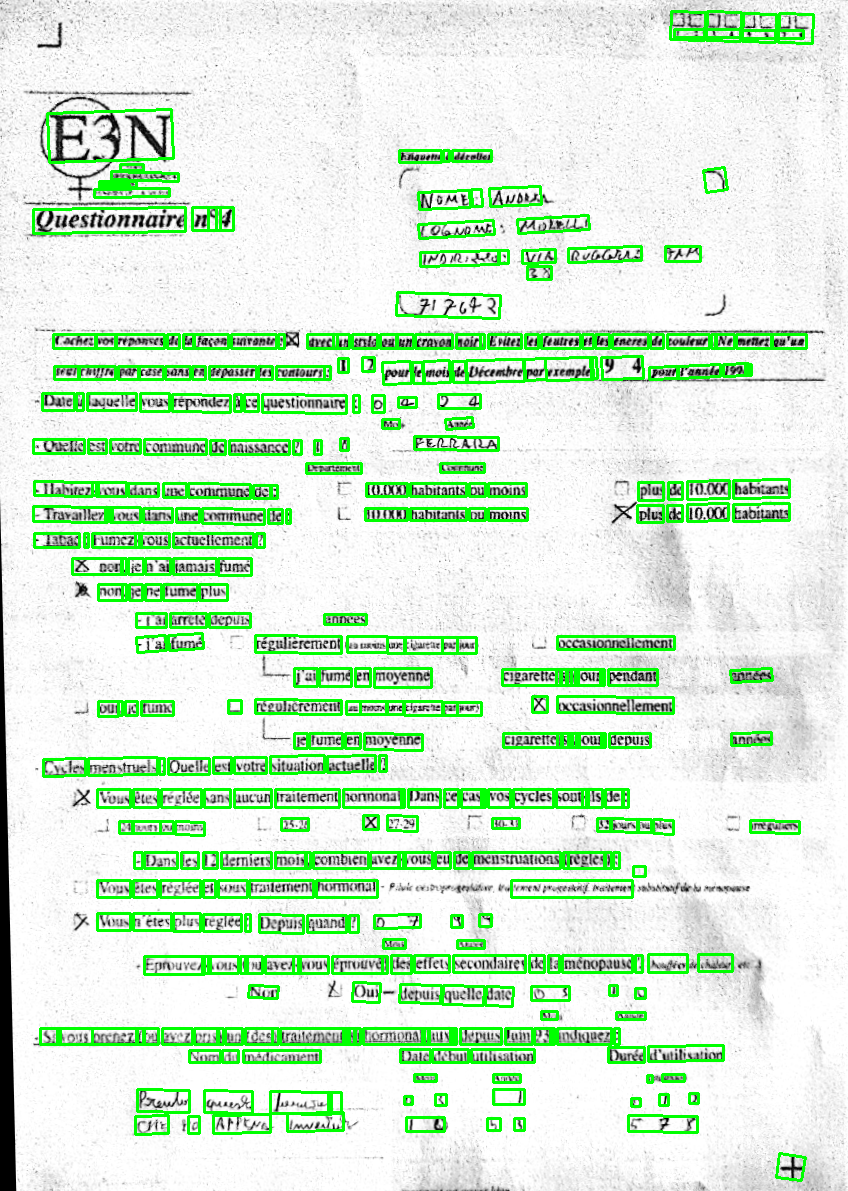 E3N
Questionnaire n° 4
Etiquette à décoller
NOME: ANDREA
COGNOME: MORELLI
INDIRIZZO: VIA RUGGERI
33
717642
Cochez vos réponses de la façon suivante : ☒ avec un stylo ou un crayon noir. Evitez les feutres et les encres de couleur. Ne mettez qu'un
seul chiffre par case sans en dépasser les contours : 1 2 pour le mois de Décembre par exemple 9 4 pour l'année 199.
- Date à laquelle vous répondez à ce questionnaire : 0 4 94
Mois Année
- Quelle est votre commune de naissance ? FERRARA
Département Commune
- Habitez-vous dans une commune de : 10.000 habitants ou moins plus de 10.000 habitants
- Travaillez-vous dans une commune de : 10.000 habitants ou moins ☒ plus de 10.000 habitants
- Tabac : Fumez-vous actuellement ?
☒ non, je n'ai jamais fumé
☒ non, je ne fume plus
- j'ai arrêté depuis années
- j'ai fumé régulièrement (au moins une cigarette par jour) occasionnellement
j'ai fumé en moyenne cigarette(s)/jour pendant années
oui, je fume régulièrement (au moins une cigarette par jour) ☒ occasionnellement
je fume en moyenne cigarette(s)/jour depuis années
- Cycles menstruels : Quelle est votre situation actuelle ?
☒ Vous êtes réglée sans aucun traitement hormonal. Dans ce cas, vos cycles sont-ils de :
24 jours ou moins 25-26 ☒ 27-29 30-31 32 jours ou plus irréguliers
- Dans les 12 derniers mois, combien avez-vous eu de menstruations (règles) :
Vous êtes réglée et sous traitement hormonal - Pilule oestroprogestative, traitement progestatif, traitement substitutif de la ménopause
☒ Vous n'êtes plus réglée : Depuis quand ? 0 7
Mois Année
- Eprouvez-vous (ou avez-vous éprouvé) des effets secondaires de la ménopause ? bouffées de chaleur, etc...
Non ☒ Oui – depuis quelle date 03
Mois Année
- Si vous prenez (ou avez pris) un (des) traitement(s) hormonal(aux) depuis Juin 93 indiquez :
Nom du médicament Date début utilisation Durée d'utilisation
Mois Année
Prendo questo farmaco 0 3 1 0 1 2
CHE HO APPENA 578